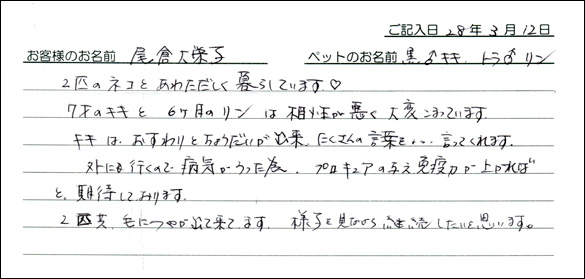 ご記入日 28年 3月 12日
お客様のお名前 尾倉 栄子 ペットのお名前 黒♂キキ トラ♂リン
2匹のネコとあわただしく暮らしています♡
7才のキキと 6ヶ月のリン は 相性が悪く 大変こまっています。
キキは、おすわりとちょうだいが出来、たくさんの言葉を・・・言ってくれます。
外にも行くので 病気がうつった為、プロキュアの与え 免疫力が上がれば
と、期待しております。
2匹共、毛につやが出て来てます。 様子を見ながら 継続したいと思います。